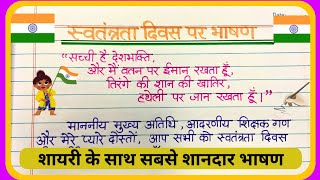 Date:
स्वतंत्रता दिवस पर भाषण
"सच्ची है देशभक्ति,
और मैं वतन पर ईमान रखता हूँ,
तिरंगे की शान की खातिर,
हथेली पर जान रखता हूँ।"
माननीय मुख्य अतिथि, आदरणीय शिक्षक गण
और मेरे प्यारे दोस्तों, आप सभी को स्वतंत्रता दिवस
शायरी के साथ सबसे शानदार भाषण